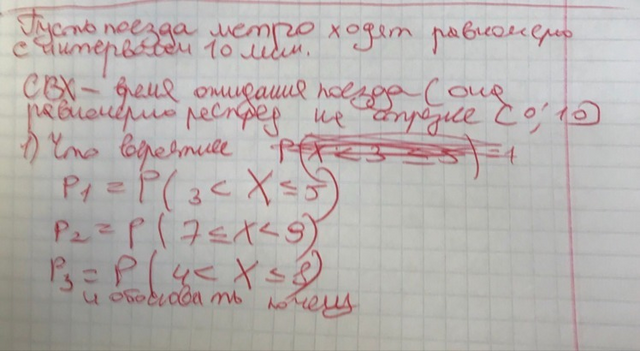 Пусть поезда метро ходят равномерно
с интервалом 10 мин.
СВХ - время ожидания поезда (она
равномерно распред на отрезке [0; 10]
1) Что вероятнее
P₁ = P( 3 < X ≤ 5)
P₂ = P( 7 ≤ X < 9)
P₃ = P( 4 < X ≤ 8)
и обосновать почему